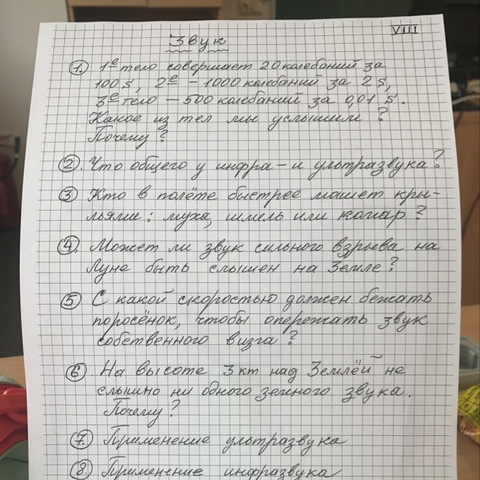 VIII
Звук
1. 1е тело совершает 20 колебаний за
100 s, 2е – 1000 колебаний за 2 s,
3е тело – 500 колебаний за 0,01 s.
Какое из тел мы услышим?
Почему?
2. Что общего у инфра- и ультразвука?
3 Кто в полёте быстрее машет кры-
льями: муха, шмель или комар?
4 Может ли звук сильного взрыва на
Луне быть слышен на Земле?
5 С какой скоростью должен бежать
поросёнок, чтобы опережать звук
собственного визга?
6 На высоте 3 км над Землёй не
слышно ни одного земного звука.
Почему?
7 Применение ультразвука
8 Применение инфразвука